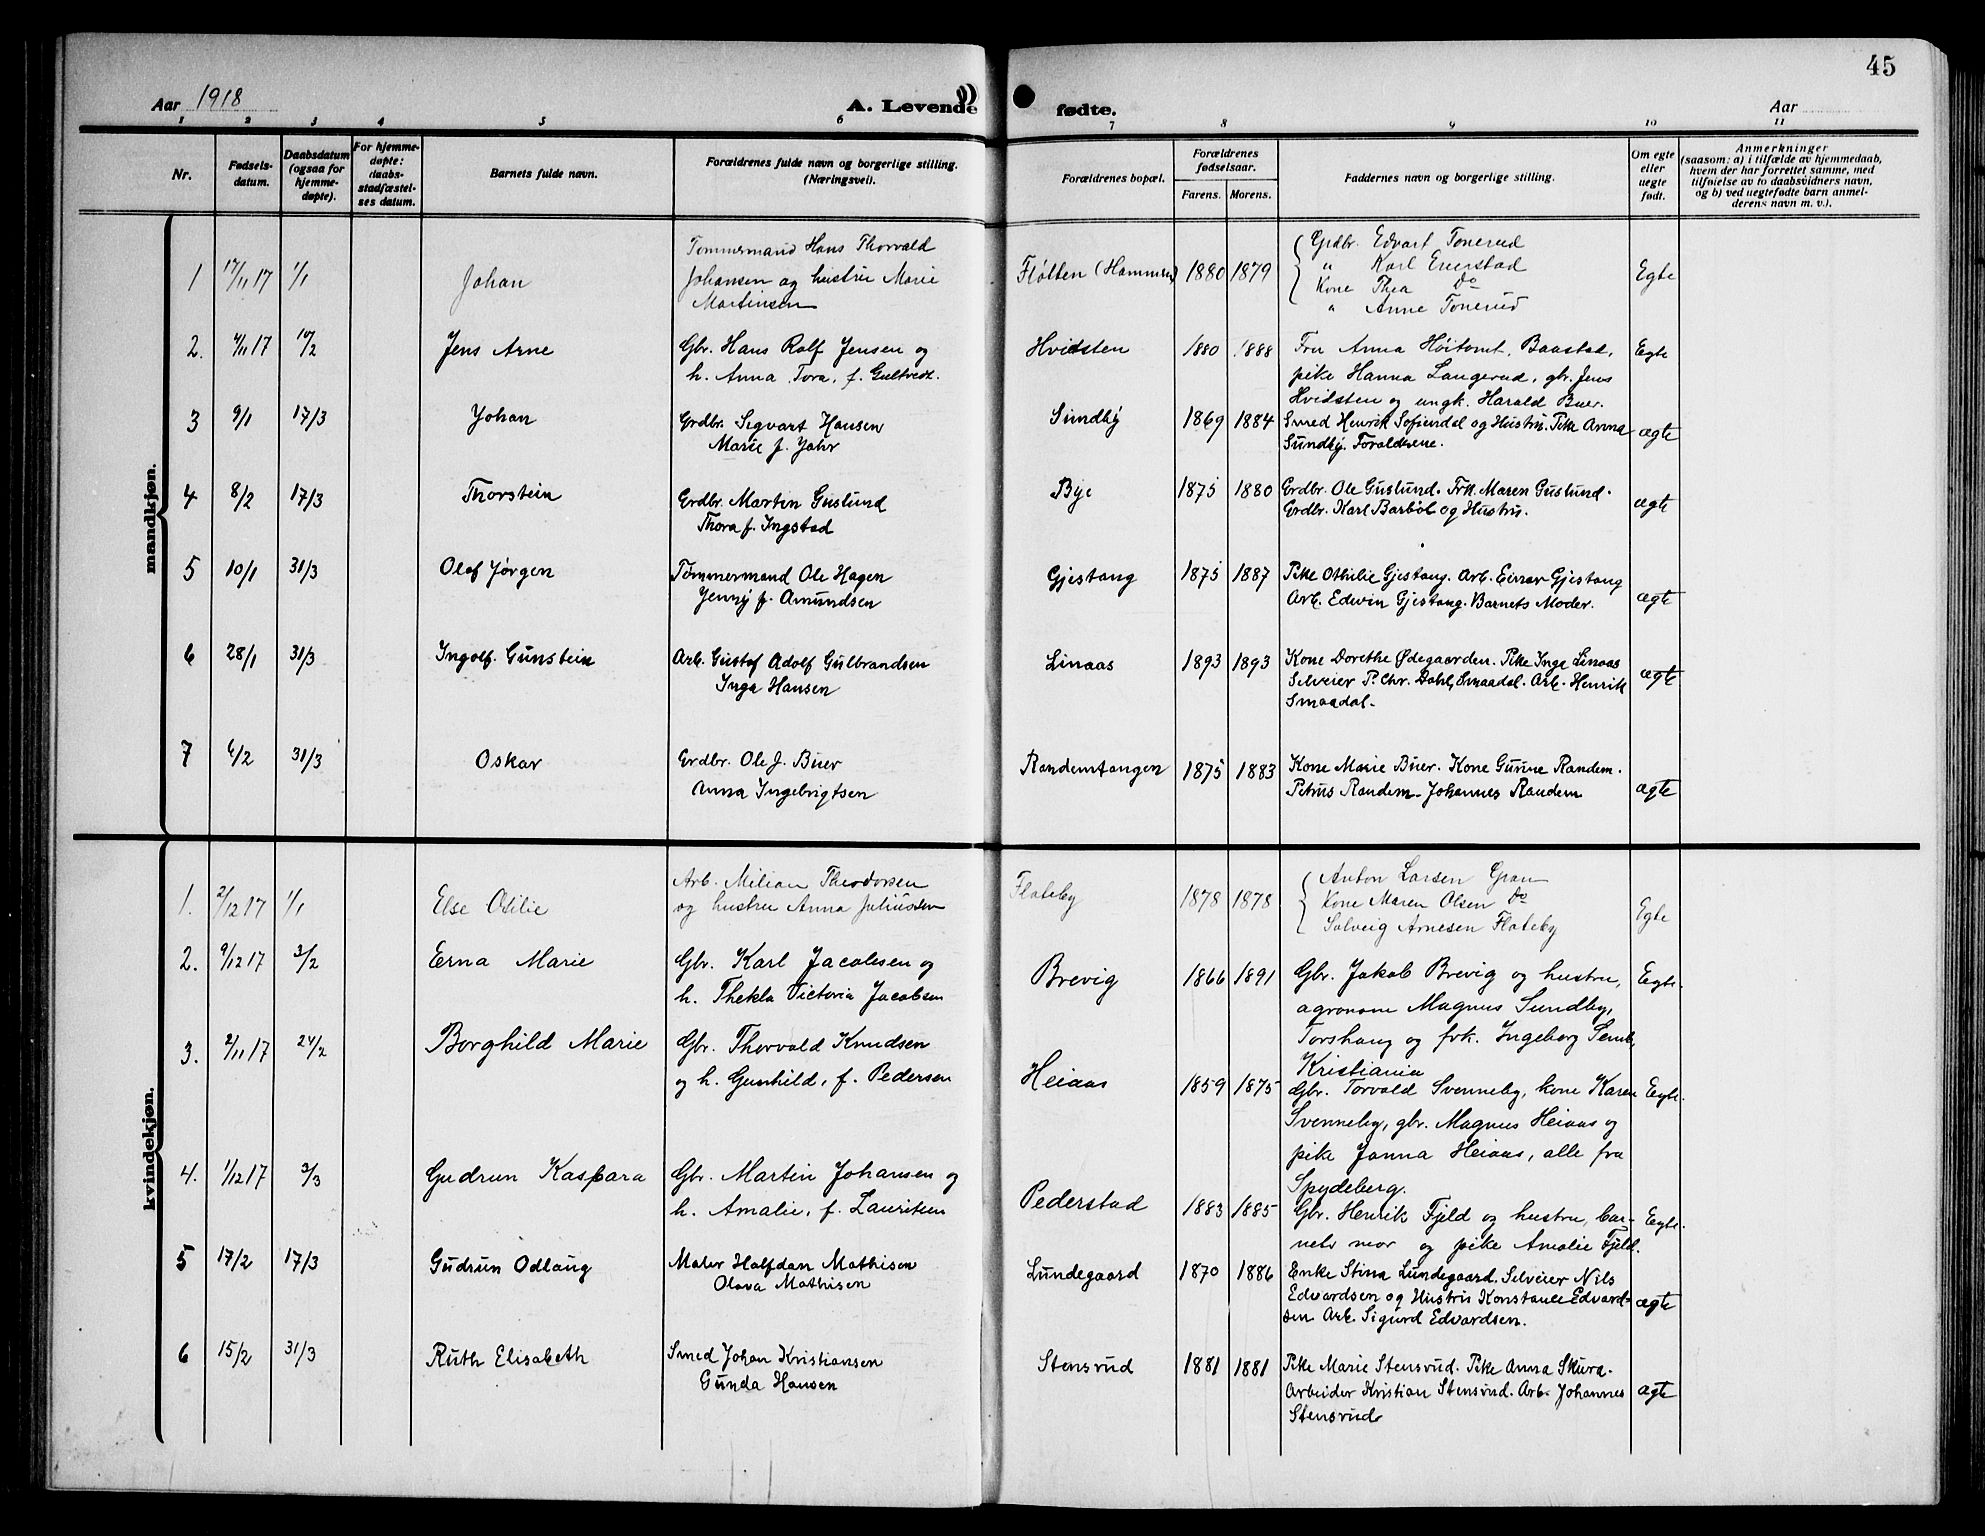 45
Aar 1918
A. Levende fødte.
Aar
1 2 3 4 5 6 7 8 9 10 11
Nr.
Fødsels-
datum.
Daabsdatum
(ogsaa for
hjemme-
døpte).
For hjemme-
døpte:
daabs-
stadfæstel-
ses datum.
Barnets fulde navn.
Forældrenes fulde navn og borgerlige stilling.
(Næringsvei).
Forældrenes bopæl.
Forældrenes
fødselsaar.
Farens. Morens.
Faddernes navn og borgerlige stilling.
Om egte
eller
uegte
født.
Anmerkninger
(saasom: a) i tilfælde av hjemmedaab,
hvem der har forrettet samme, med
tilføielse av to daabsvidners navn,
og b) ved uegtefødte barn anmel-
derens navn m. v.).
mandkjøn.
1 17/11 17 1/1 Johan
Tømmermand Hans Thorvald
Johansen og hustru Marie
Martinsen
Fløtten (Hammeren) 1880 1879
Grdbr. Edvart Tonerud
" Karl Enerstad
Kone Thea Do
" Anne Tonerud
Egte
2. 4/11 17 10/2 Jens Arne
Gbr. Hans Rolf Jensen og
h. Anna Tora, f. Gultvedt.
Hvidsten 1880 1888
Fru Anna Høitomt, Baastad,
pike Hanna Langerud, gbr. Jens
Hvidsten og ungk. Harald Buer.
Egte
3 9/1 17/3 Johan
Grdbr. Sigvart Hansen
Marie f. Jahr
Sundby 1869 1884
Smed Henrik Sofiendal og Hustru. Pike Anna
Sundby. Forældrene.
ægte
4 8/2 17/3 Thorstein
Grdbr. Morten Guslund
Thora f. Ingstad
Bye 1875 1880
Grdbr. Ole Guslund. Frk. Maren Guslund.
Grdbr. Karl Barbøl og Hustru.
ægte
5 10/1 31/3 Olaf Jørgen
Tømmermand Ole Hagen
Jenny f. Amundsen
Gjestang 1875 1887
Pike Othilie Gjestang. Arb. Einar Gjestang
Arb. Edwin Gjestang. Barnets Moder.
ægte
6 28/1 31/3 Ingolf Gunstein
Arb. Gustaf Adolf Gulbrandsen
Inga Hansen
Linaas 1893 1893
Kone Dorethe Ødegaarden. Pike Inga Linaas
Selveier P. Chr. Dahl, Smaadal. Arb. Henrik
Smaadal.
ægte
7 6/2 31/3 Oskar
Grdbr. Ole J. Buer
Anna Ingebrigtsen
Randemtangen 1875 1883
Kone Marie Buer. Kone Gurine Randem.
Petrus Randem. Johannes Randem
ægte
kvindekjøn.
1. 2/12 17 1/1 Else Otilie
Arb. Milian Theodorsen
og hustru Anna Juliusdtr
Flateby 1878 1878
Anton Larsen Gran
Kone Maren Olsen Do
Solveig Arnesen Flateby
Egte
2. 9/12 17 3/2 Erna Marie
Gbr. Karl Jacobsen og
h. Thekla Victoria Jacobsen
Brevig 1866 1891
Gbr. Jakob Brevig og hustru,
agronom Magnus Sundby,
Torshaug og frk. Ingeborg Semb,
Kristiania
Egte.
3. 2/11 17 24/2 Borghild Marie
Gbr. Thorvald Knudsen
og h. Gunhild, f. Pedersen
Heiaas 1859 1875
Gbr. Torvald Svenneby, kone Karen
Svenneby, gbr. Magnus Heiaas og
pike Janna Heiaas, alle fra
Spydeberg.
Egte.
4. 1/12 17 3/3 Gudrun Kaspara
Gbr. Martin Johansen og
h. Amalie, f. Lauritsen
Pederstad 1883 1885
Gbr. Henrik Fjeld og hustru, bar-
nets mor og pike Amalie Fjeld.
Egte.
5 17/2 17/3 Gudrun Odlaug
Maler Halfdan Mathisen
Olava Mathisen
Lundegaard 1870 1886
Enke Stina Lundegaard. Selveier Nils
Edvardsen og Hustru Konstance Edvard-
sen Arb. Sigurd Edvardsen.
ægte
6 15/2 31/3 Ruth Elisabeth
Smed Johan Kristiansen
Gunda Hansen
Stensrud 1881 1881
Pike Marie Stensrud. Pike Anna Skura.
Arbeider Kristian Stensrud. Arb. Johannes
Stensrud.
ægte